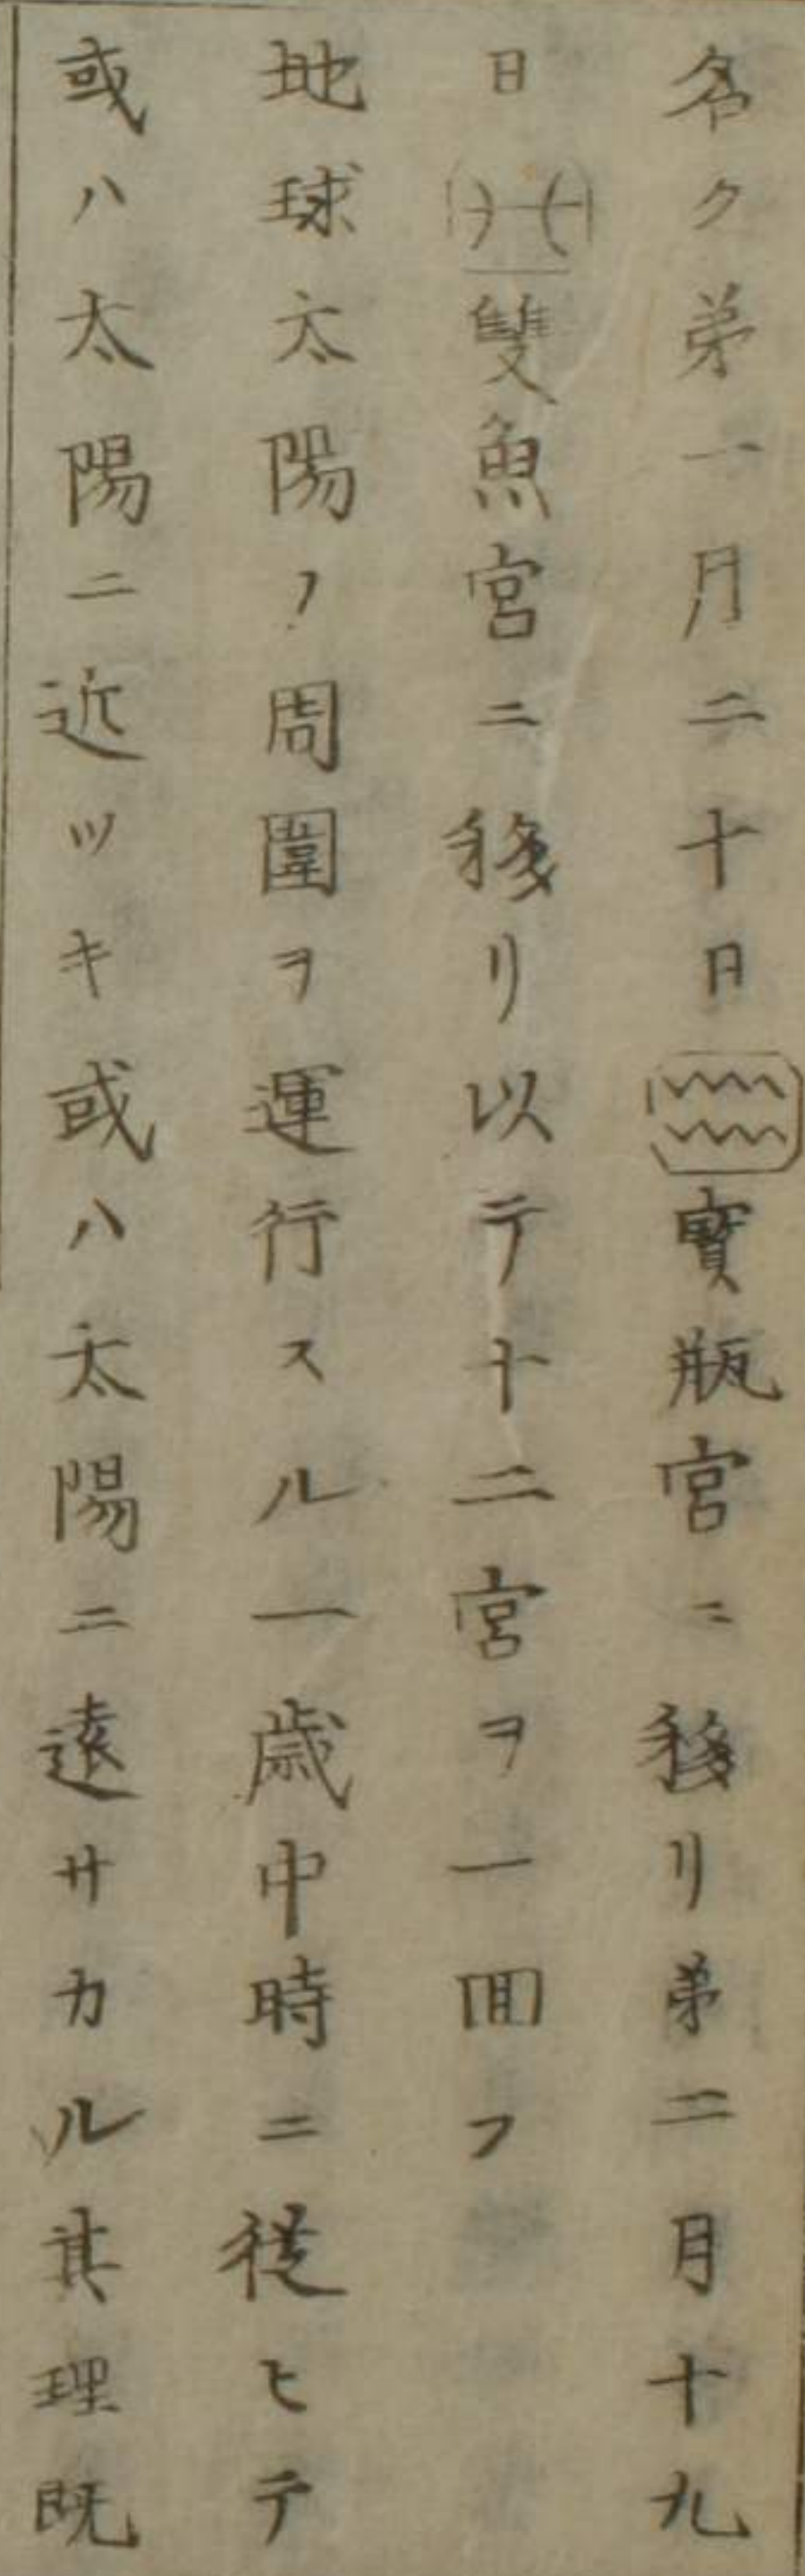 名ク弟一月二十日♒寳瓶宮ニ移リ弟二月十九
日♓雙魚宮ニ移リ以テ十二宮ヲ一囬フ
地球太陽ノ周圍ヲ運行スル一歳中時ニ從ヒテ
或ハ太陽ニ近ツキ或ハ太陽ニ遠サカル其理既